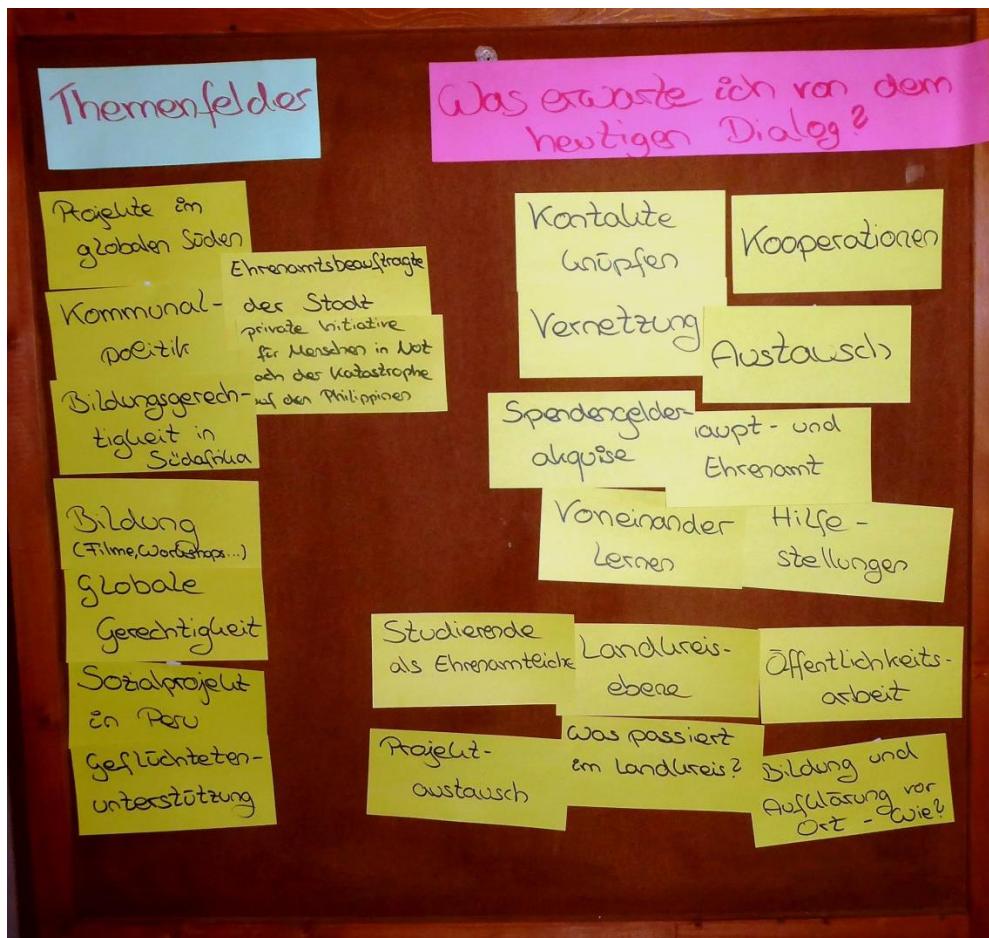 Themenfelder
Projekte im
globalen Süden
Ehrenamtsbeauftragte
der Stadt
Kommunal-
politik
private Initiative
für Menschen in Not
nach der Katastrophe
auf den Philippinen
Bildungsgerech-
tigkeit in
Südafrika
Bildung
(Filme, Workshops...)
Globale
Gerechtigkeit
Sozialprojekt
in Peru
Geflüchteten-
unterstützung
Was erwarte ich von dem
heutigen Dialog?
Kontakte
knüpfen
Kooperationen
Vernetzung
Austausch
Spendengelder-
akquise
Haupt- und
Ehrenamt
Voneinander
Lernen
Hilfe-
stellungen
Studierende
als Ehrenamtliche
Landkreis-
ebene
Öffentlichkeits-
arbeit
Projekt-
austausch
Was passiert
im Landkreis?
Bildung und
Aufklärung vor
Ort - Wie?